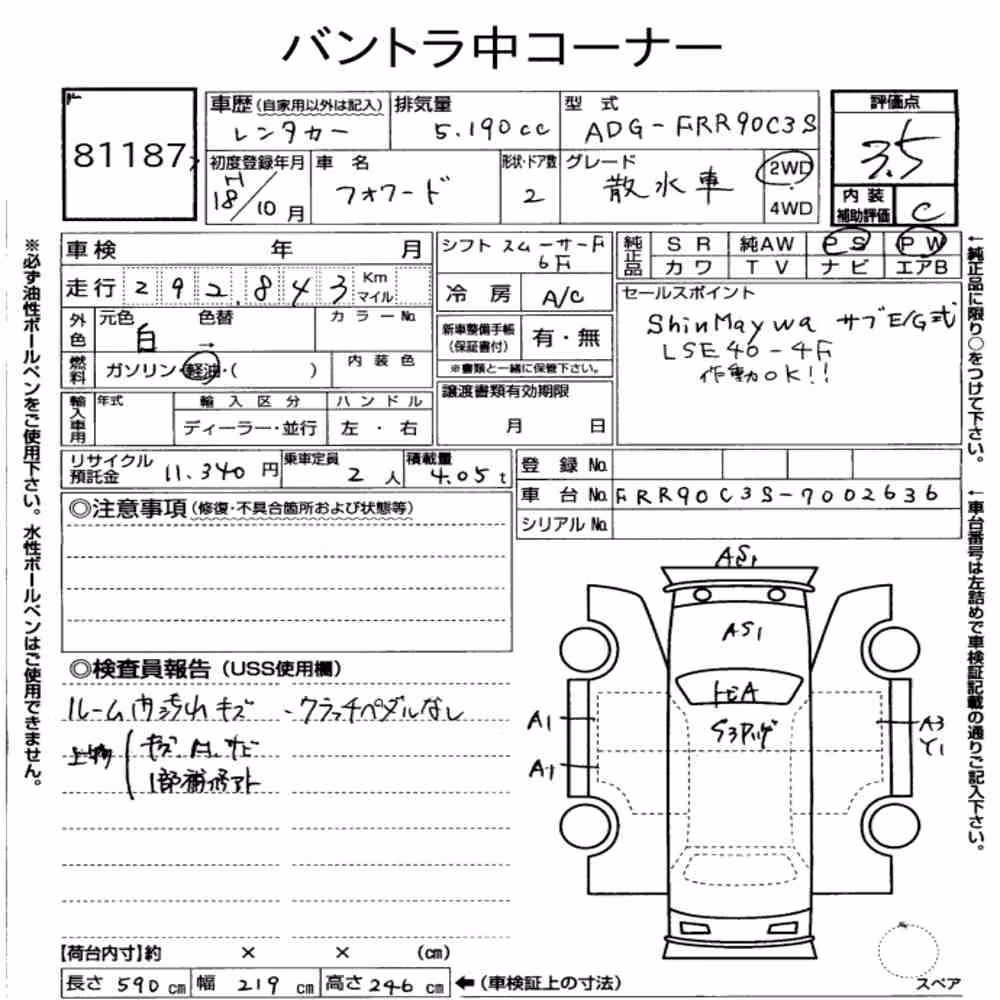 バントラ中コーナー
81187
車歴 (自家用以外は記入) レンタカー
排気量 5.190cc
型式 ADG-FRR90C3S
評価点 3.5
初度登録年月 H18/10月
車名 フォワード
形状・ドア数 2
グレード 散水車
2WD
4WD
内装補助評価 C
車検 年 月
シフト コムーサーF 6F
純正品 SR 純AW PS PW
カワ TV ナビ エアB
走行 292,843 Km マイル
冷房 A/C
セールスポイント
ShinMaywa サブE/G式
LSE40-4F
作動OK!!
外色 元色 白 色替 → カラーNo.
新車整備手帳 (保証書付) 有・無
※書類と一緒に保管下さい。
燃料 ガソリン・軽油・( ) 内装色
譲渡書類有効期限
月 日
輸入車用 年式 輸入区分 ハンドル
ディーラー・並行 左・右
リサイクル預託金 11.340円
乗車定員 2人
積載量 4.05t
登録No.
車台No. FRR90C3S-7002636
シリアルNo.
◎注意事項 (修復・不具合箇所および状態等)
◎検査員報告 (USS使用欄)
ルーム内汚れキズ ・クラッチペダルなし
上物 キズ、凹、サビ
1部補修アト
AS1
AS1
トビA
A1
A1
A3
Y1
スペア
【荷台内寸】約 × × (cm)
長さ 590cm 幅 219cm 高さ 246cm ←(車検証上の寸法)
※必ず油性ボールペンをご使用下さい。水性ボールペンはご使用できません。
←純正品に限り○をつけて下さい。
←車台番号は左詰めで車検証記載の通りご記入下さい。